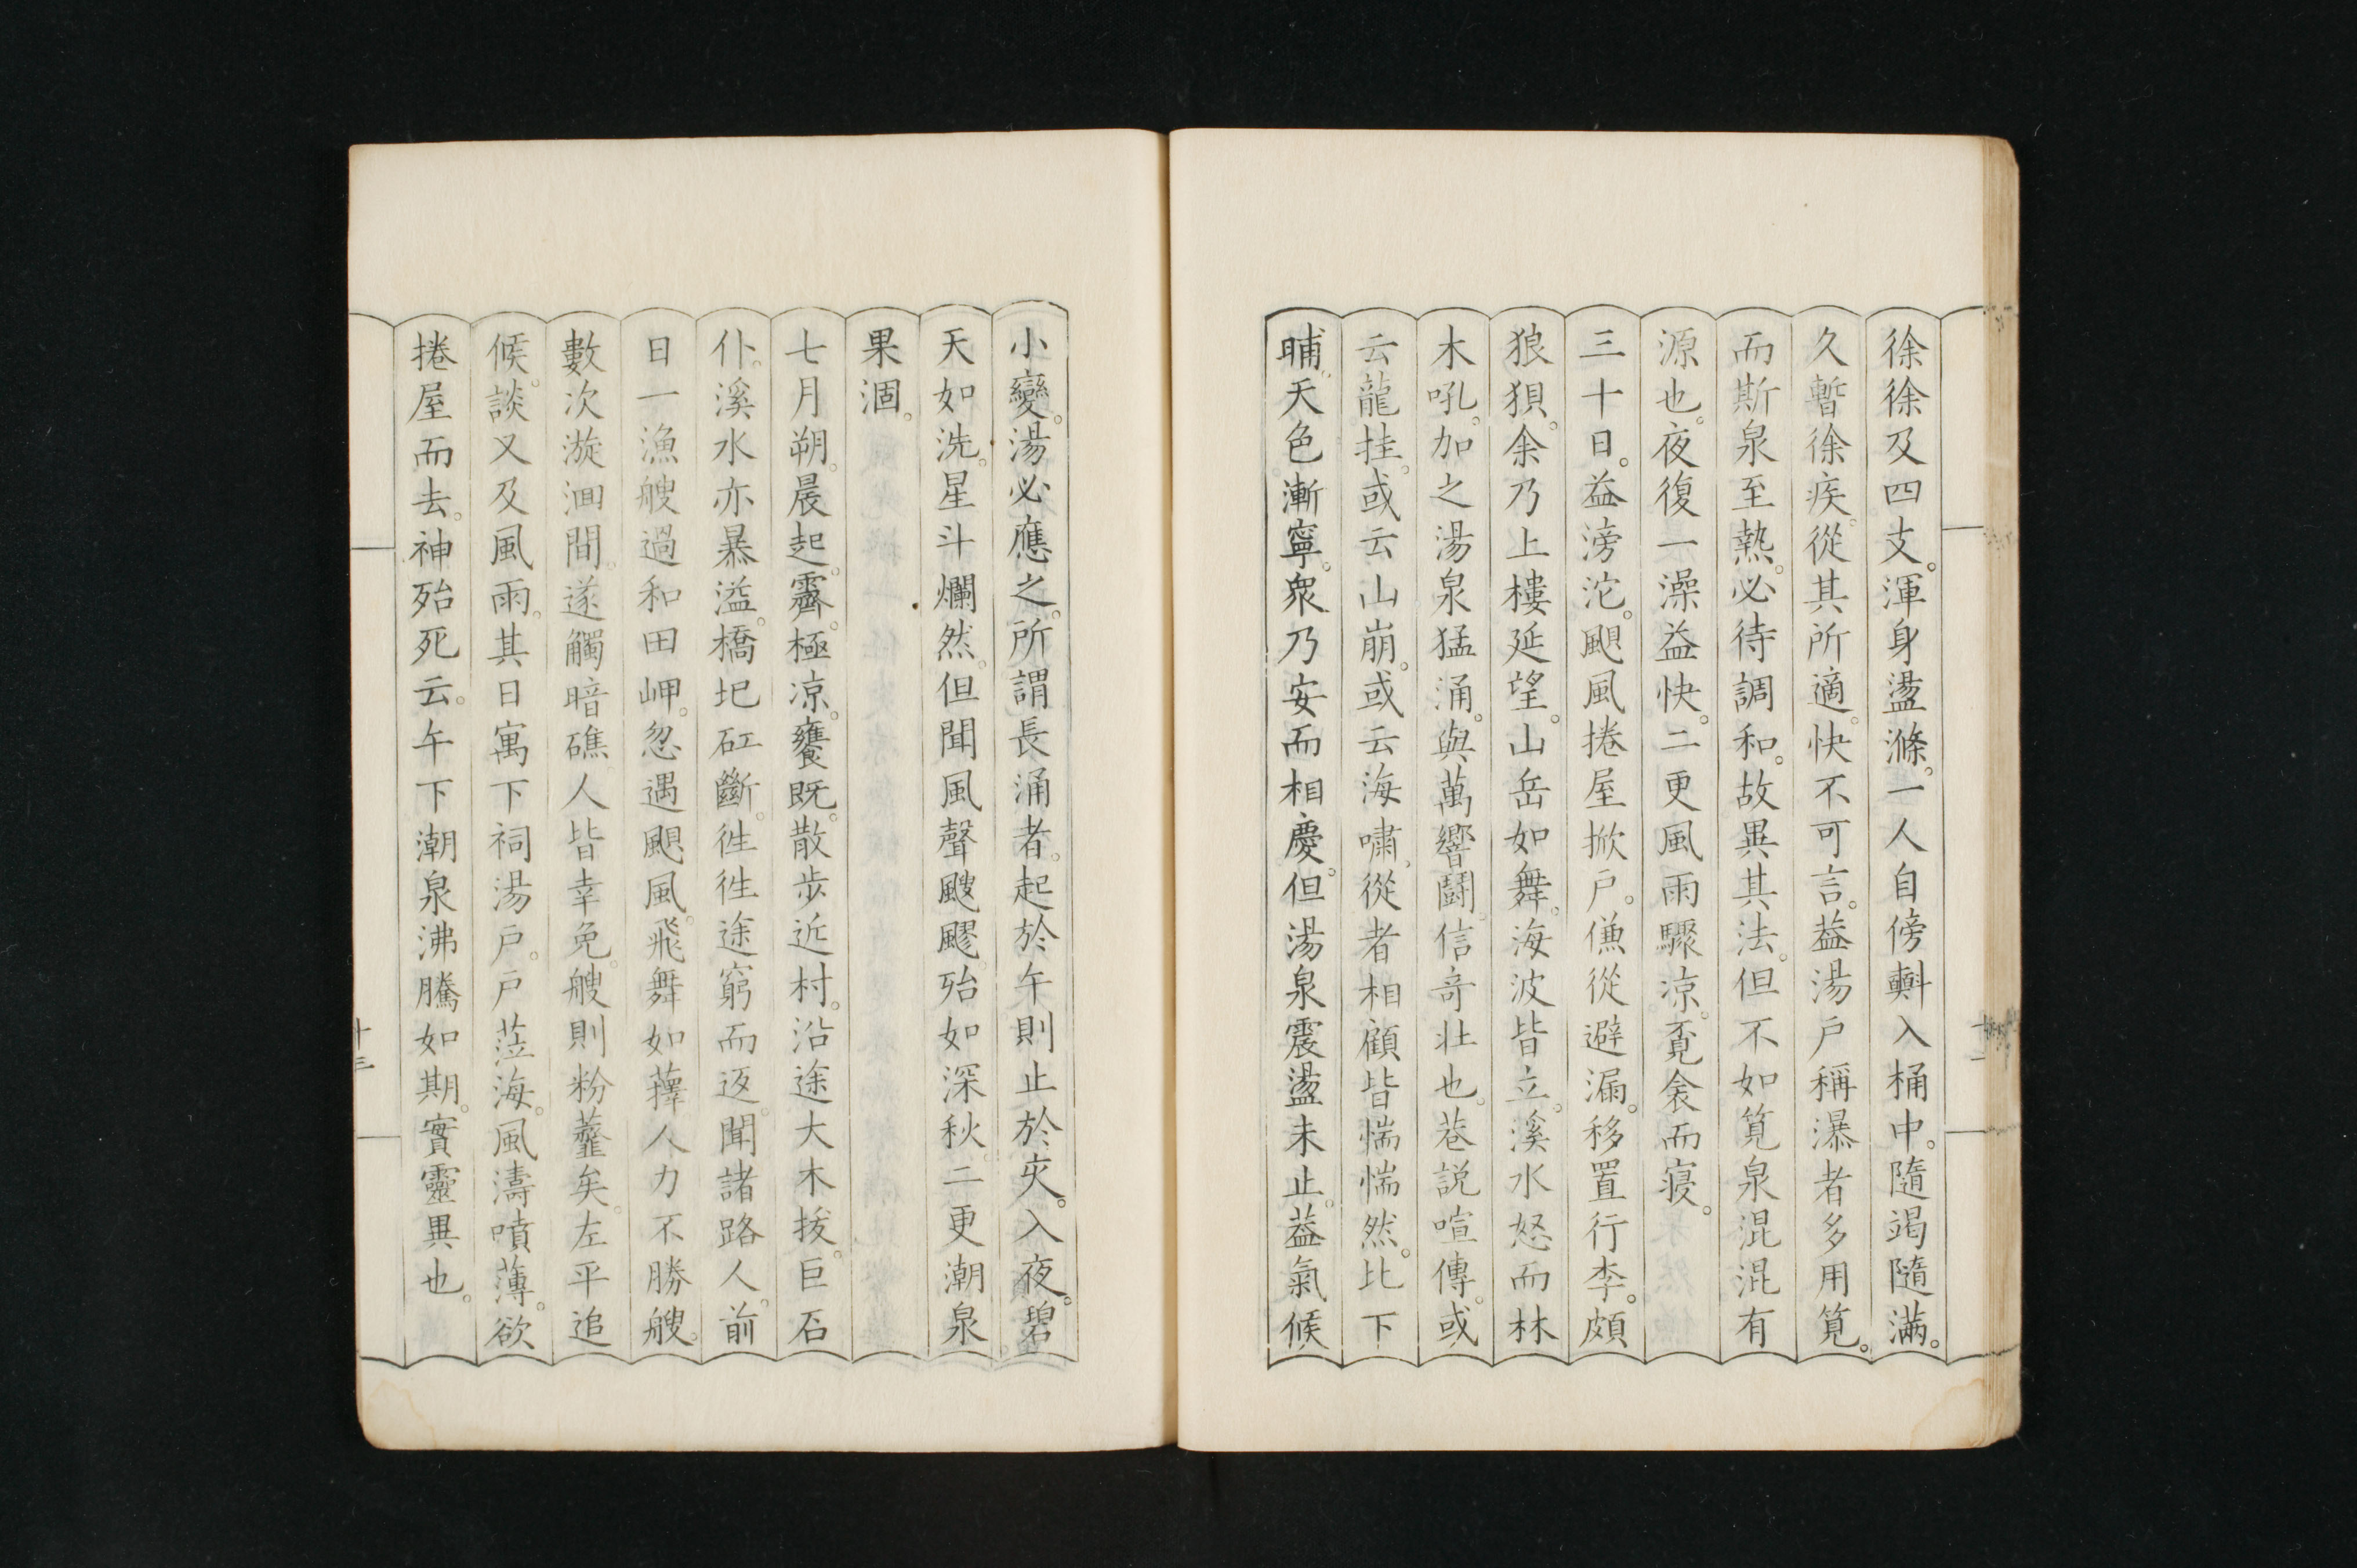 徐徐及四支。渾身盪滌。一人自傍㪺入桶中。隨竭隨滿。
久暫徐疾。從其所適。快不可言。葢湯戶稱瀑者多用筧。
而斯泉至熱。必待調和。故異其法。但不如筧泉混混有
源也。夜復一澡益快。二更風雨驟凉。覔衾而寢。
三十日。益滂沱。颶風捲屋掀戶。傔從避漏。移置行李。頗
狼狽。余乃上樓延望。山岳如舞。海波皆立。溪水怒而林
木吼。加之湯泉猛涌。與萬響鬪。信奇壯也。巷説喧傳。或
云龍挂。或云山崩。或云海嘯。從者相顧皆惴惴然。比下
晡。天色漸寧。衆乃安而相慶。但湯泉震盪未止。葢氣候
小變。湯必應之。所謂長涌者。起於午則止於夾。入夜。碧
天如洗。星斗爛然。但聞風聲颼飂。殆如深秋。二更潮泉
果涸。
七月朔。晨起。霽。極凉。饔既。散步近村。沿途大木拔。巨石
仆。溪水亦暴溢。橋圯矼斷。徃徃途窮而返。聞諸路人。前
日一漁艘過和田岬。忽遇颶風。飛舞如蘀。人力不勝。艘
數次漩洄間。遂觸暗礁。人皆幸免。艘則粉虀矣。左平追
候。談又及風雨。其日寓下祠湯戶。戶蒞海。風濤噴薄。欲
捲屋而去。神殆死云。午下潮泉沸騰如期。實靈異也。
十三